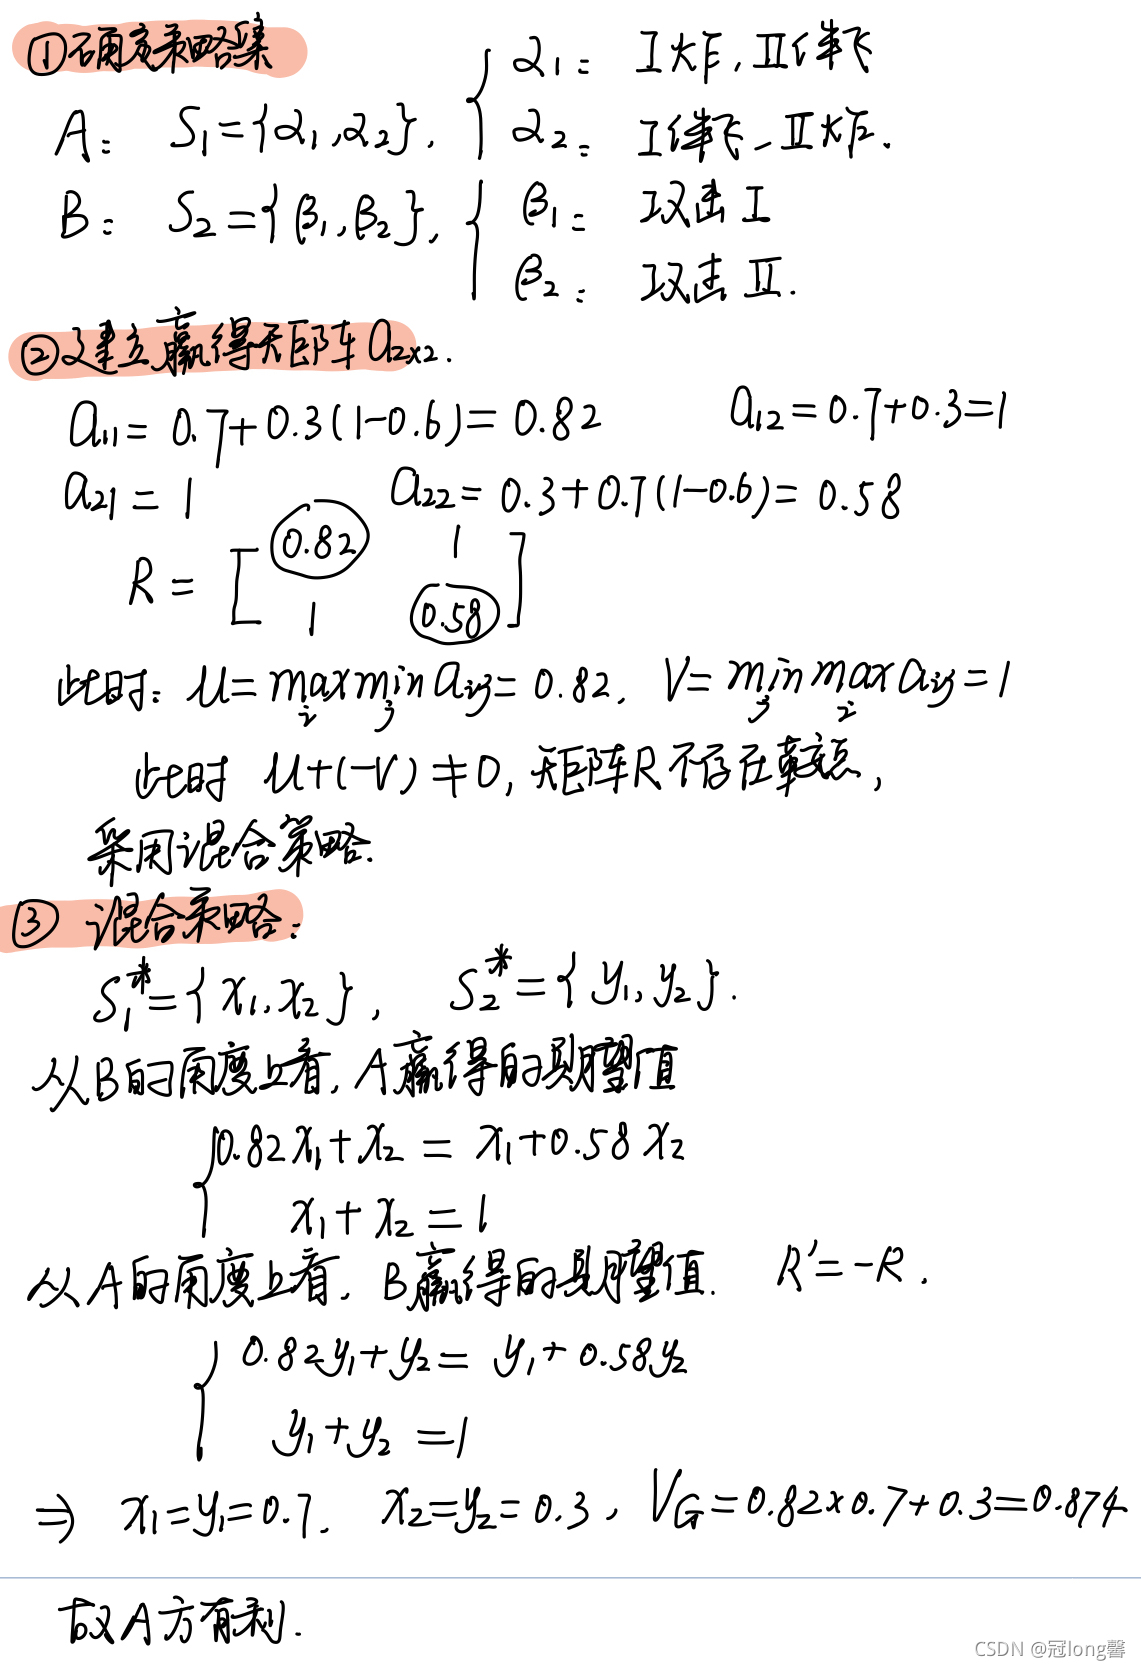 ①确定策略集
A: S₁={α₁,α₂}, { α₁: I大F, II伴飞
α₂: I伴飞, II大F.
B: S₂={β₁,β₂}, { β₁: 攻击 I
β₂: 攻击 II.
②建立赢得矩阵 a₂ₓ₂.
a₁₁= 0.7+0.3(1-0.6)= 0.82 a₁₂=0.7+0.3=1
a₂₁ = 1 a₂₂= 0.3+0.7(1-0.6)= 0.58
R = [ 0.82 1
1 0.58 ]
此时: u= max min aij= 0.82, V= min max aij=1
i j j i
此时 u+(-v)≠0, 矩阵R不存在鞍点,
采用混合策略.
③ 混合策略:
S₁*={x₁,x₂}, S₂*={y₁,y₂}.
从B的角度上看, A赢得的期望值
{ 0.82x₁+x₂ = x₁+0.58x₂
x₁+x₂=1
从A的角度上看, B赢得的期望值. R'=-R.
{ 0.82y₁+y₂= y₁+0.58y₂
y₁+y₂ =1
⇒ x₁=y₁=0.7, x₂=y₂=0.3, VG=0.82×0.7+0.3=0.874
故A方有利.
CSDN @冠long馨